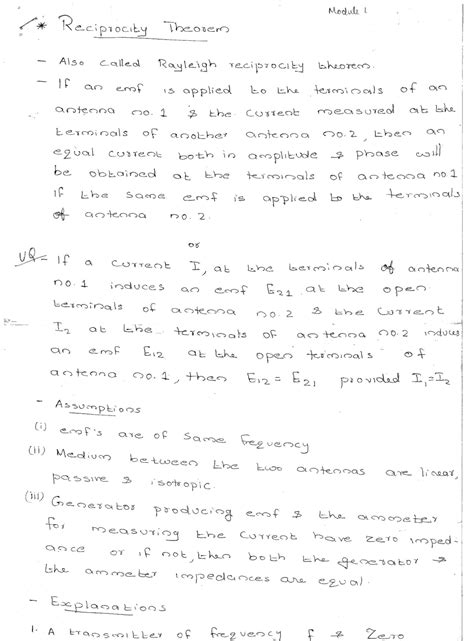 Module 1
* Reciprocity Theorem
- Also called Rayleigh reciprocity theorem.
- If an emf is applied to the terminals of an
antenna no. 1 & the current measured at the
terminals of another antenna no. 2, then an
equal current both in amplitude & phase will
be obtained at the terminals of antenna no 1
If the same emf is applied to the terminals
of antenna no. 2.
or
VQ - If a current I, at the terminals of antenna
no. 1 induces an emf E21 at the open
terminals of antenna no. 2 & the current
I2 at the terminals of antenna no. 2 induces
an emf E12 at the open terminals of
antenna no. 1, then E12 = E21 provided I1 = I2
- Assumptions
(i) emf's are of same frequency
(ii) Medium between the two antennas are linear,
passive & isotropic.
(iii) Generator producing emf & the ammeter
for measuring the current have zero imped-
ance or if not, then both the generator &
the ammeter impedances are equal.
- Explanations
1. A transmitter of frequency f & zero